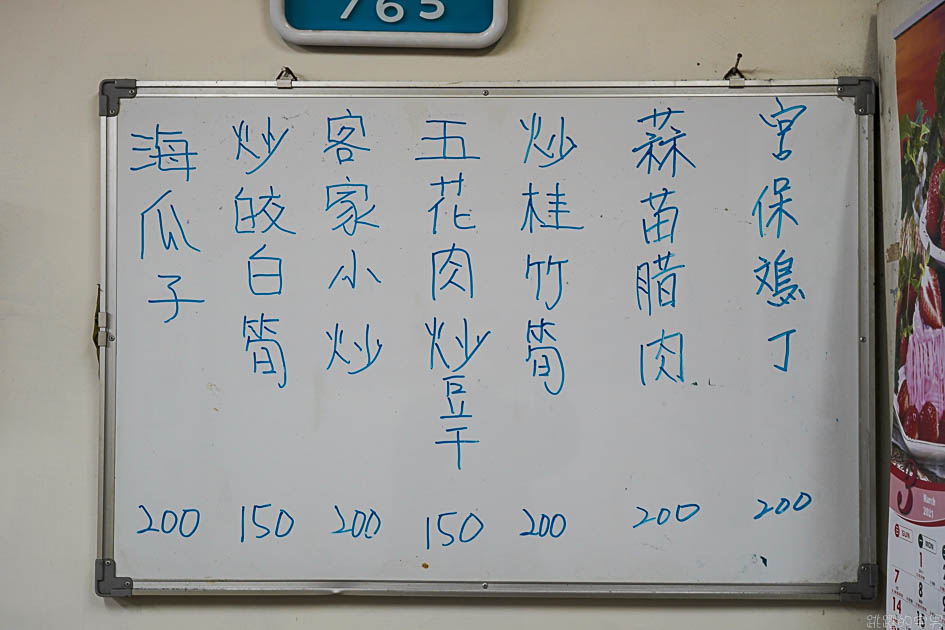 765
宮保鷄丁 200
蒜苗腊肉 200
炒桂竹筍 200
五花肉炒豆干 150
客家小炒 200
炒皎白筍 150
海瓜子 200
3
March
2021
SUN
MON
1
7
8
14